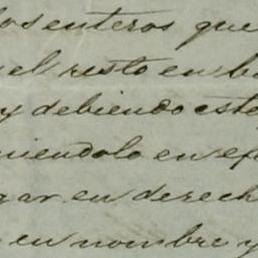 los enteros que
el resto en
y debiendo este
niendolo en
gar en derech
en nombre y